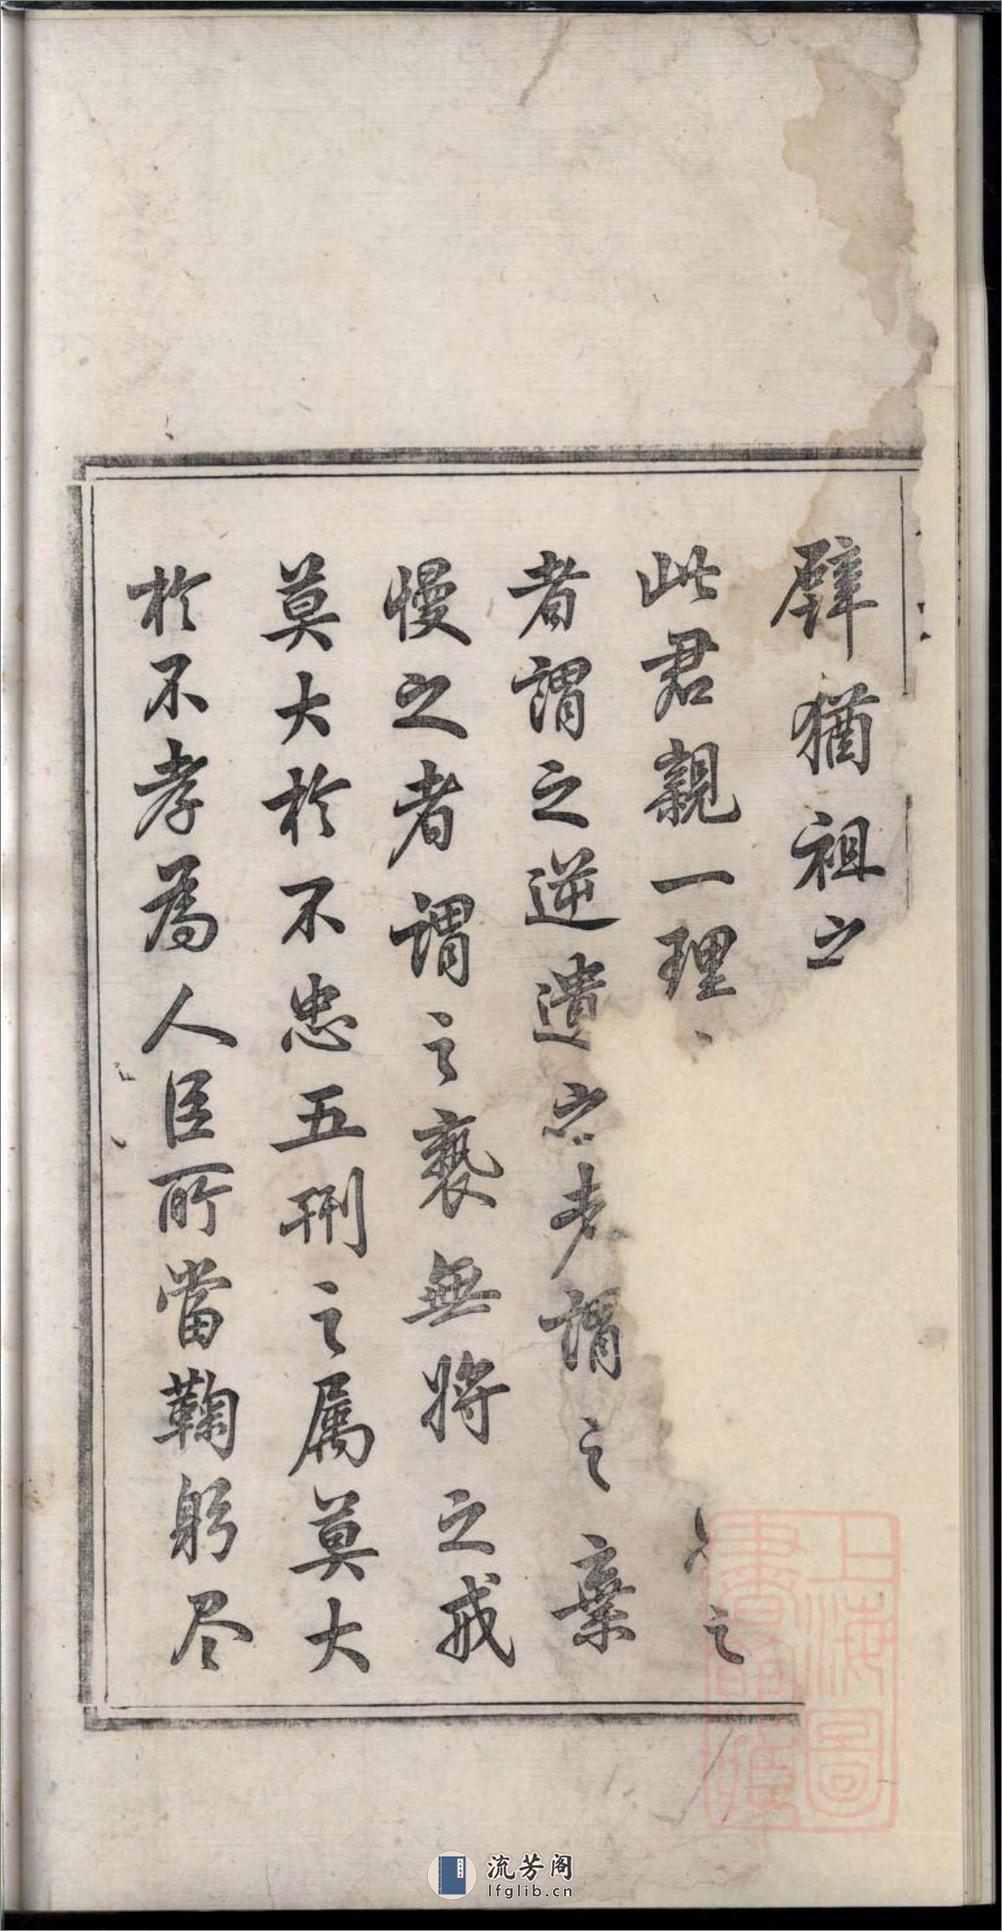 辟猶祖之
此君親一理
之
者謂之逆遺之者謂之棄
慢之者謂之褻無將之戒
莫大於不忠五刑之属莫大
於不孝為人臣所當鞠躬尽
上海圖書館藏
流芳阁
lfglib.cn